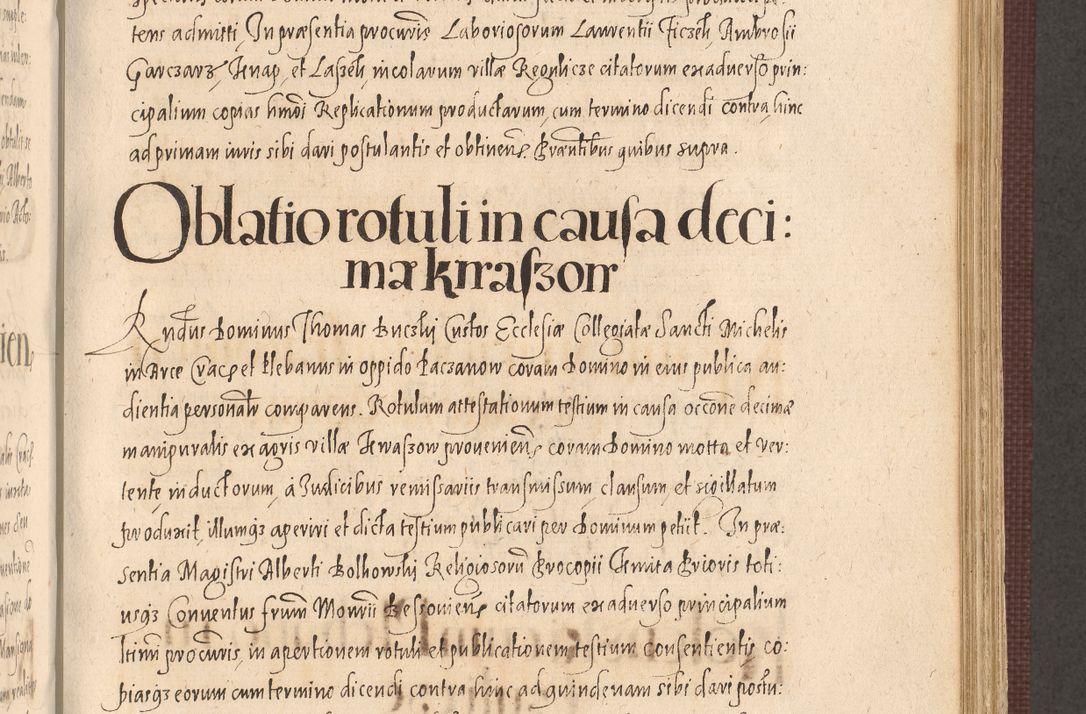 tens admitti, In præsentia procuris Laboriosorum Laurentii Ficzek, Ambrosii
Garczarz, Knap, et Laszek, incolarum villæ Regulicze citatorum ex adverso prin:
cipalium copias hmoi Replicationum productarum, cum termino dicendi contra, hinc
ad primam iuris sibi dari postulantis et obtinens. Præntibus quibus supra.
Oblatio rotuli in causa deci:
mæ kwaszow
Rndus Dominus Thomas Buczkij Custos Ecclesiæ Collegiatæ Sancti Michelis
in Arce Crac et Plebanus in oppido Paczanow coram Domino in eius publica au:
dientia personalr comparens. Rotulum attestationum testium in causa occone decimæ
manipuralis ex agris villæ Kwaszow proveniens coram Domino motta et ver:
tente inductorum, à Iudicibus remissariis transmissum, clausum, et sigillatum
produxit, illumq3 aperiri et dicta testium publicari per Dominum petiit. In præ:
sentia Magistri Alberti Bolkowskij Religiosorũ Procopii Prioris toti:
usq3 Conventus frum citatorum ex adverso principalium
ltimi procuris, in apertionem rotuli et publicationem testium consentientis, co:
piasq3 eorum cum termino dicendi contra hinc ad quindenam sibi dari postu: